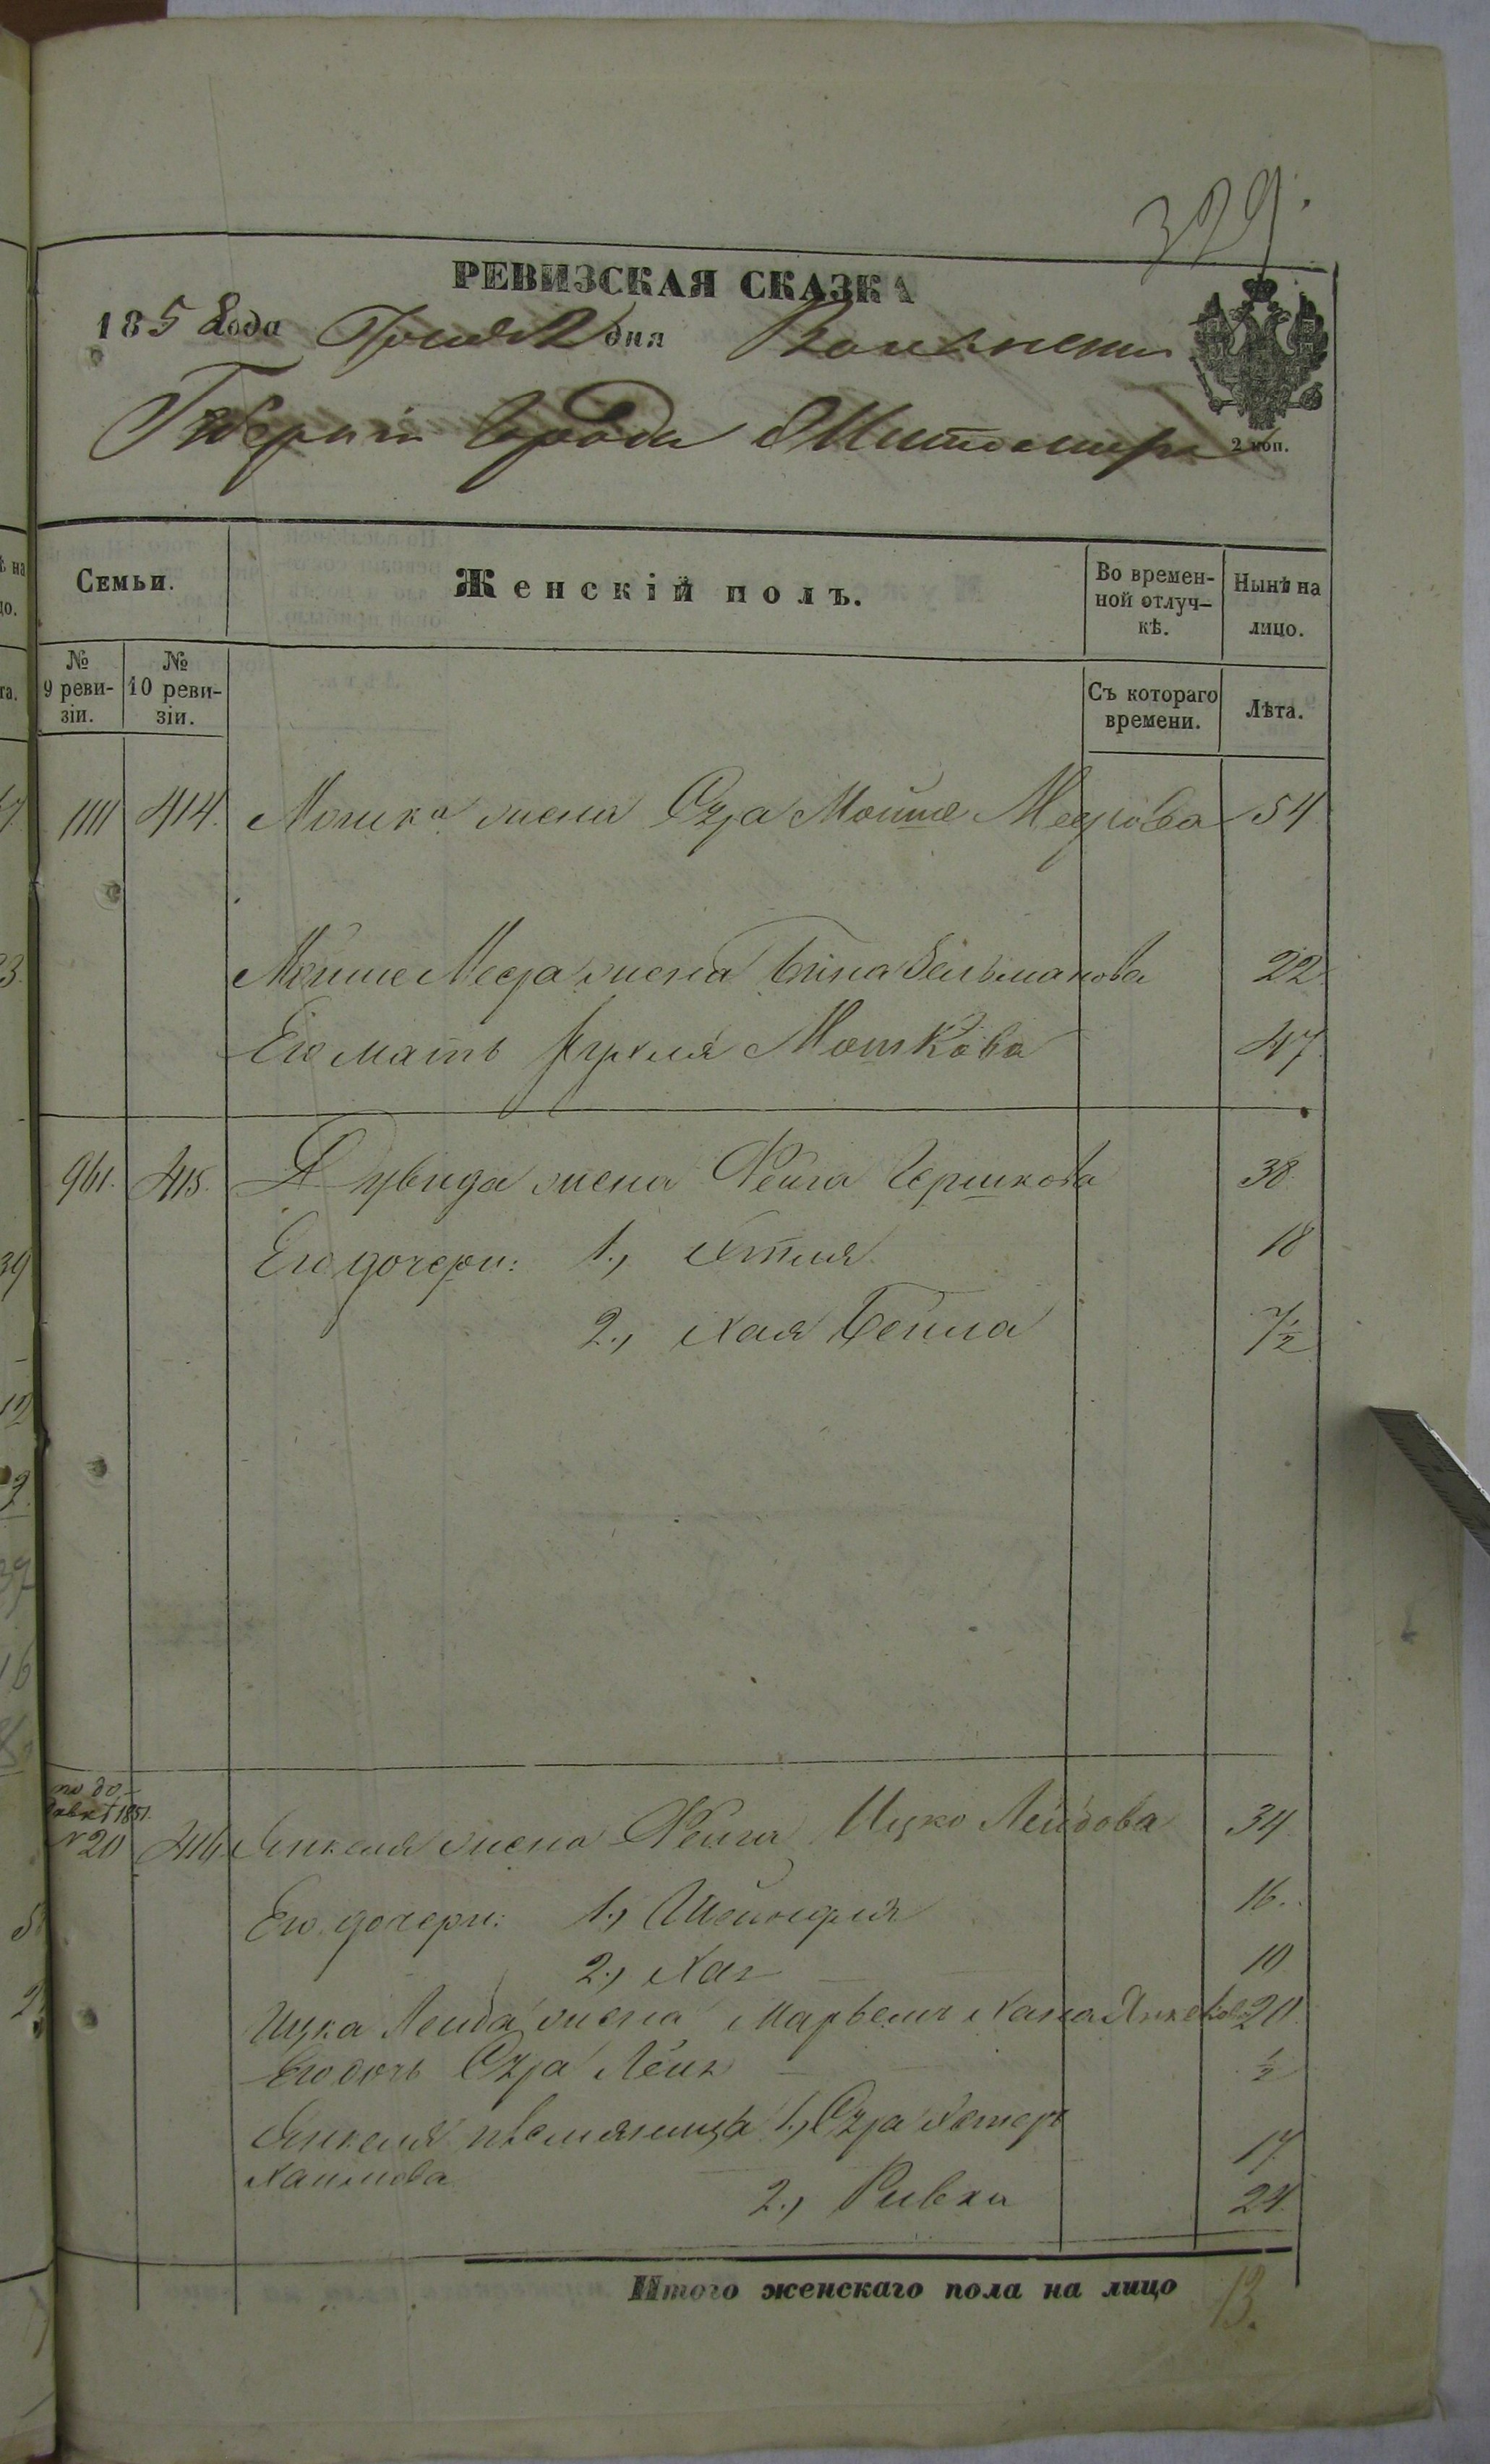 329.
РЕВИЗСКАЯ СКАЗКА
185 года дня Волынской
Губерніи Города Житомира
2 коп.
Семьи.
Женскій полъ.
Во времен-
ной отлуч-
кѣ.
Нынѣ на
лицо.
№
9 реви-
зіи.
№
10 реви-
зіи.
Съ котораго
времени.
Лѣта.
1111 414. Мошка жена Сура Мойше Меерова 54
Мойше Меера жена Бейла Зельманова 22
Его мать Мошкова 47.
961. 415. Дувида жена Фейга Гершкова 38
Его дочери: 1., Этля 18
2., Хая Бейла 7½
по до-
1851.
№ 20 416 Янкеля жена Фейга Ицко Лейбова 34.
Его дочери: 1., Шейндля 16.
2., Хая 10
Ицка Лейба жена Марьем Хана Янкелева 20.
Его дочь Сура Лея ½
Янкеля племянница 1., Сура Эстер 17.
Хаимова
2., Ривка 24.
Итого женскаго пола на лицо 13.